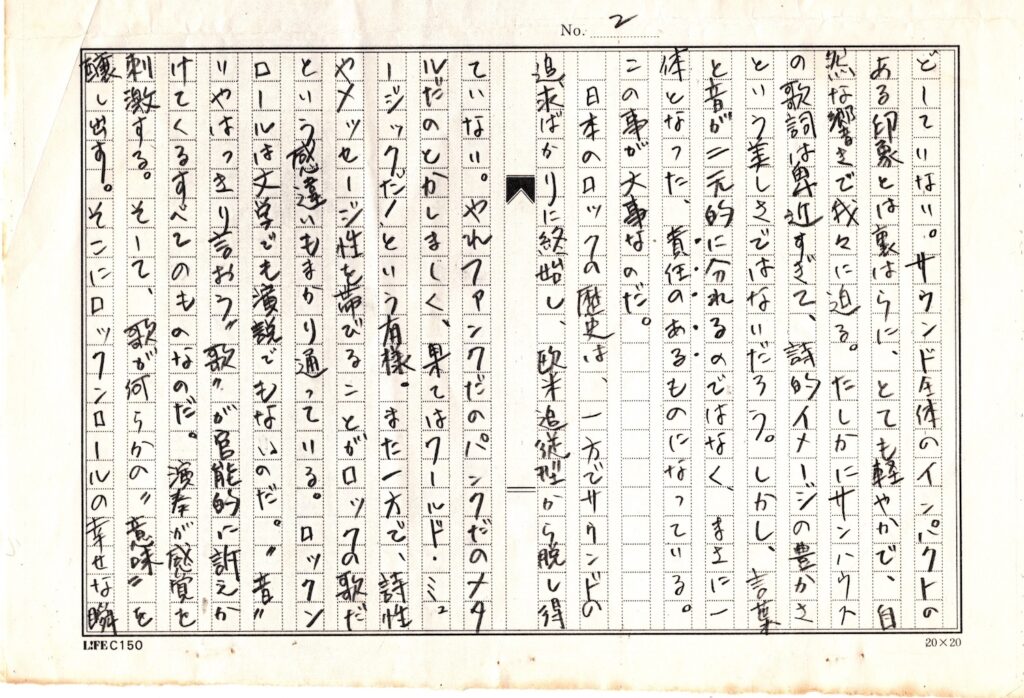 No. 2
どしていない。サウンド全体のインパクトの
ある印象とは裏はらに、とても軽やかで、自
然な響きで我々に迫る。たしかにサンハウス
の歌詞は卑近すぎて、詩的イメージの豊かさ
という美しさではないだろう。しかし、言葉
と音が二元的に分れるのではなく、まさに一
体となった、責任のあるものになっている。
この事が大事なのだ。
日本のロックの歴史は、一方でサウンドの
追求ばかりに終始し、欧米追従型から脱し得
ていない。やれファンクだのパンクだのメタ
ルだのとかしましく、果てはワールド・ミュ
ージックだ!という有様。また一方で、詩性
やメッセージ性を帯びることがロックの歌だ
という感違いもまかり通っている。ロックン
ロールは文学でも演説でもないのだ。"音"
いやはっきり言おう"歌"が官能的に訴えか
けてくるすべてのものなのだ。演奏が感覚を
刺激する。そして、歌が何らかの"意味"を
醸し出す。そこにロックンロールの幸せな瞬
LIFE C150
20×20